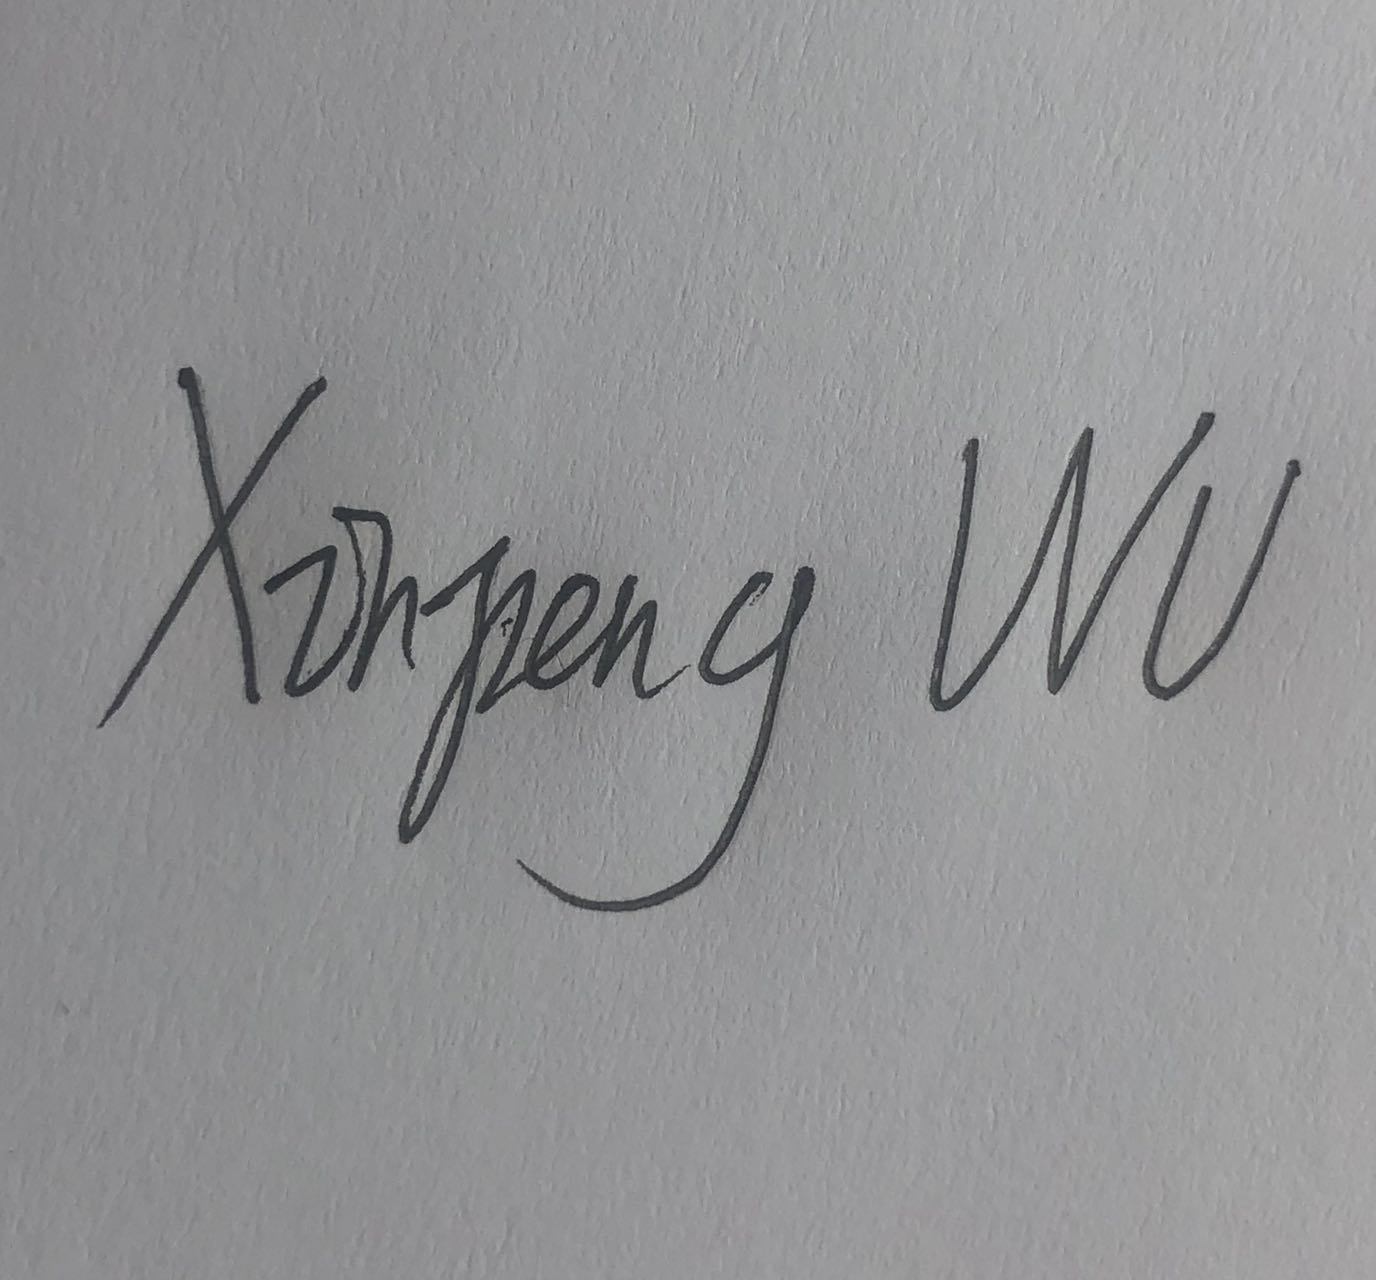 Xinpeng Wu